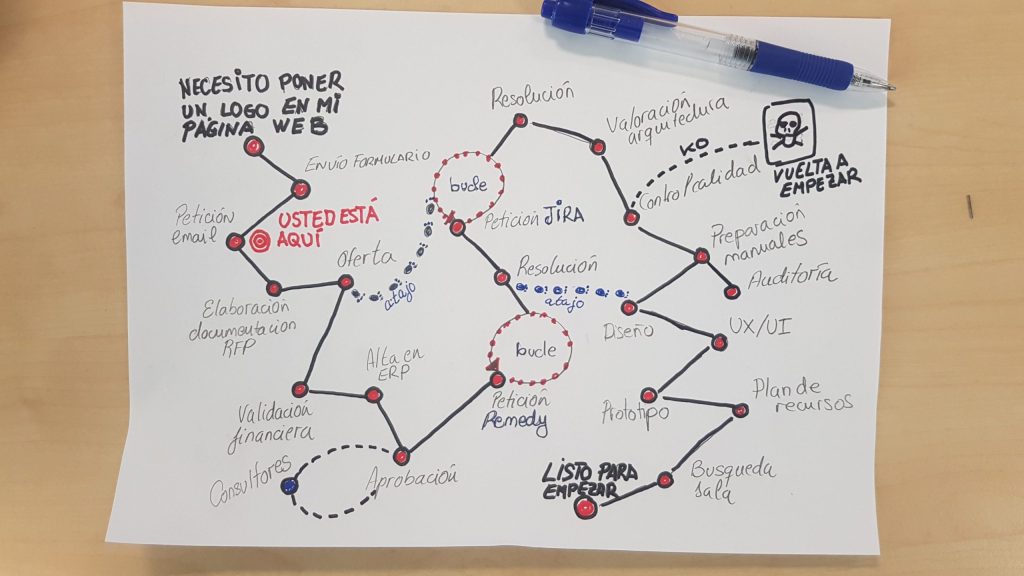 NECESITO PONER
UN LOGO EN MI
PÁGINA WEB
ENVÍO FORMULARIO
Petición
email
USTED ESTÁ
AQUÍ
Elaboración
documentacion
RFP
Oferta
atajo
Validación
financiera
Alta en
ERP
Aprobación
Consultores
Petición
Remedy
bucle
Resolución
atajo
Petición JIRA
bucle
Resolución
Valoración
arquitectura
Control calidad
KO
VUELTA A
EMPEZAR
Preparación
manuales
Auditoría
Diseño
UX/UI
Prototipo
Plan de
recursos
Busqueda
sala
LISTO PARA
EMPEZAR